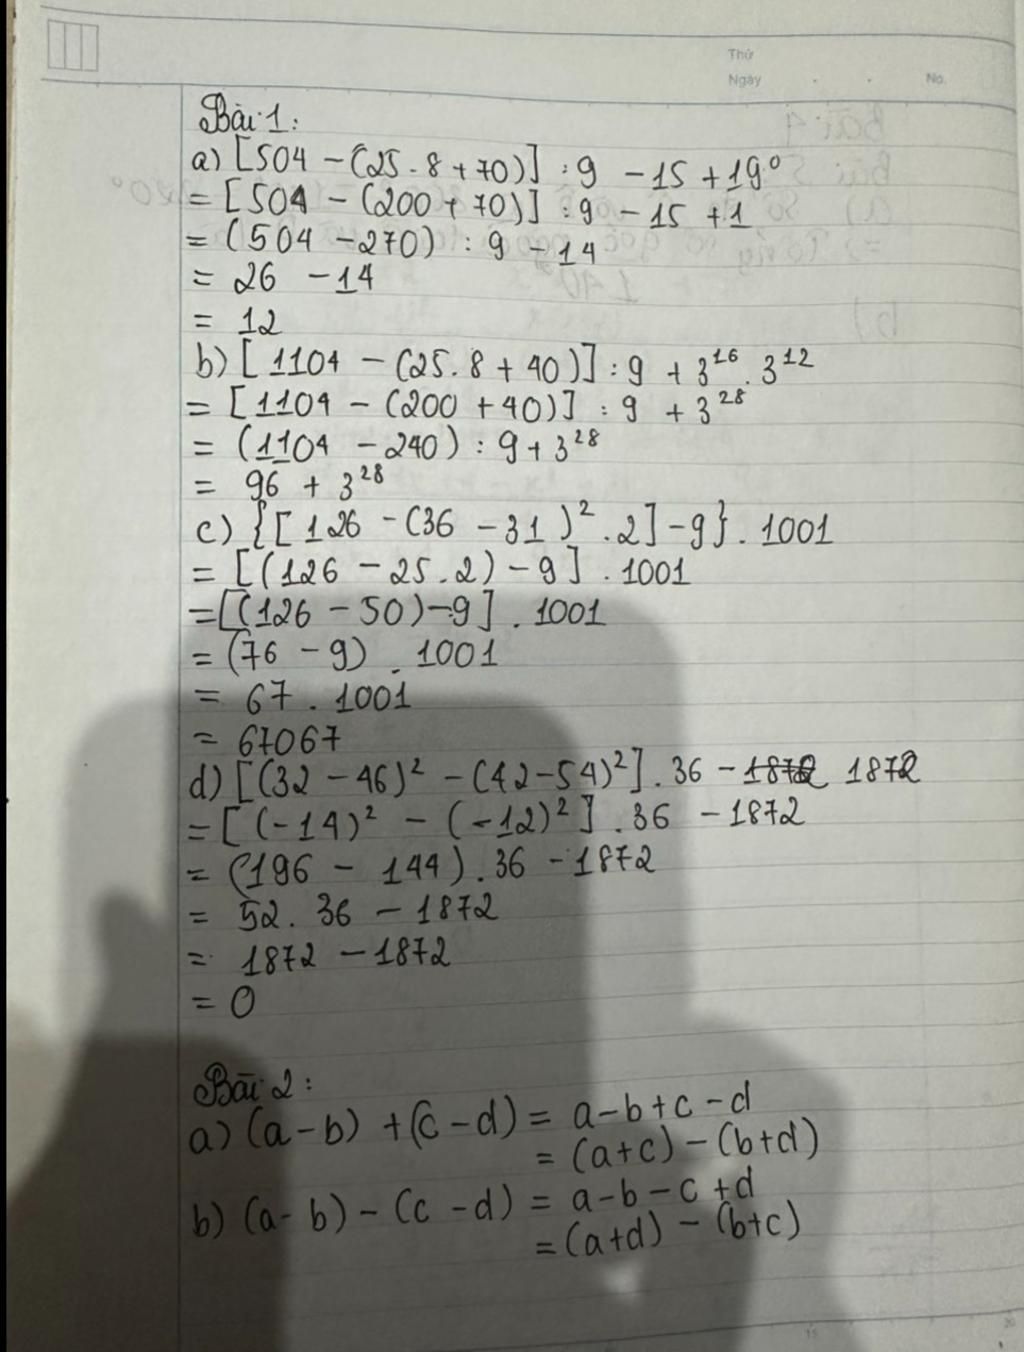 Thứ
Ngày . . No.
Bài 1:
a) [504 - (25 . 8 + 70)] : 9 - 15 + 19⁰
= [504 - (200 + 70)] : 9 - 15 + 1
= (504 - 270) : 9 - 14
= 26 - 14
= 12
b) [1104 - (25 . 8 + 40)] : 9 + 3¹⁶ . 3¹²
= [1104 - (200 + 40)] : 9 + 3²⁸
= (1104 - 240) : 9 + 3²⁸
= 96 + 3²⁸
c) {[126 - (36 - 31)² . 2] - 9} . 1001
= [(126 - 25 . 2) - 9] . 1001
= [(126 - 50) - 9] . 1001
= (76 - 9) . 1001
= 67 . 1001
= 67067
d) [(32 - 46)² - (42 - 54)²] . 36 - 1872
= [(-14)² - (-12)²] . 36 - 1872
= (196 - 144) . 36 - 1872
= 52 . 36 - 1872
= 1872 - 1872
= 0
Bài 2:
a) (a - b) + (c - d) = a - b + c - d
= (a + c) - (b + d)
b) (a - b) - (c - d) = a - b - c + d
= (a + d) - (b + c)
15 20